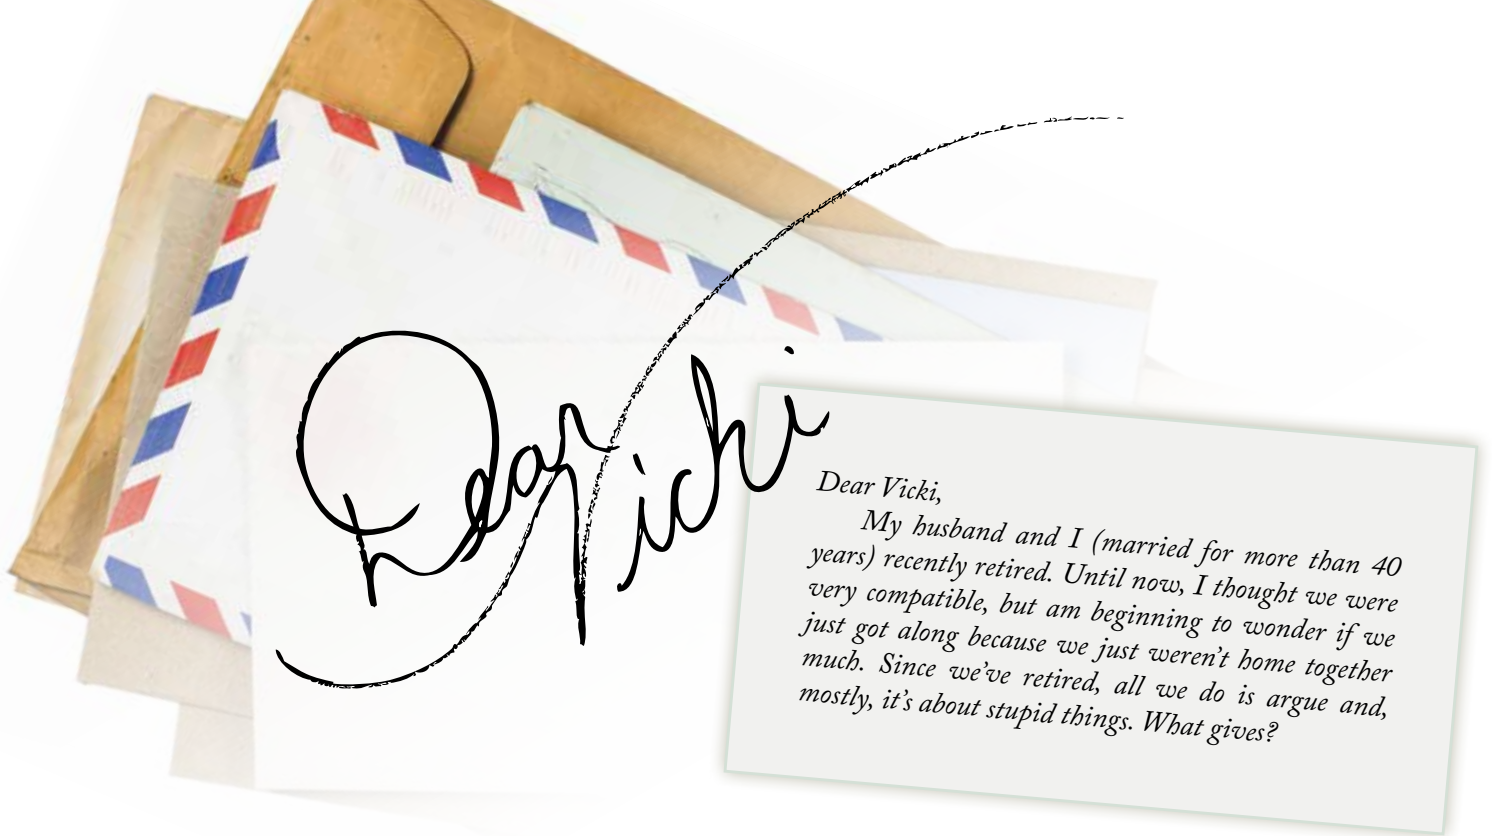 Dear
Vicki
Dear Vicki,
My husband and I (married for more than 40
years) recently retired. Until now, I thought we were
very compatible, but am beginning to wonder if we
just got along because we just weren’t home together
much. Since we’ve retired, all we do is argue and,
mostly, it’s about stupid things. What gives?